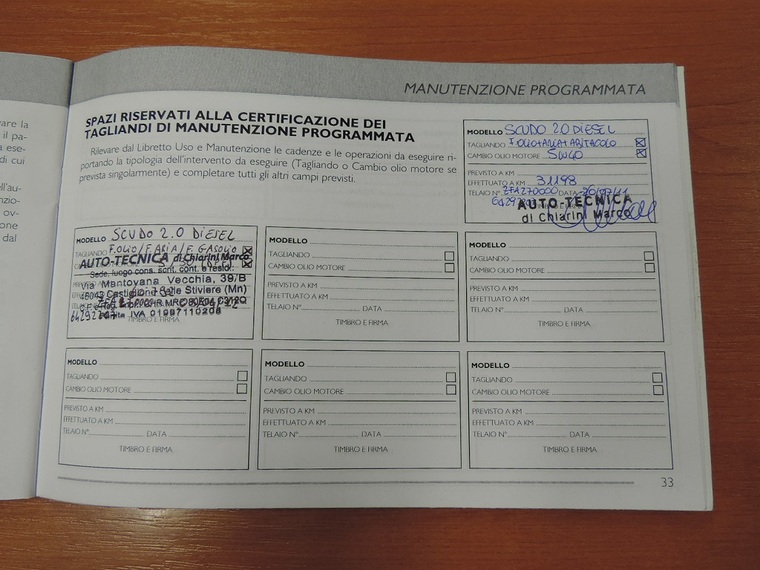 vare la
il pa-
a ese-
di cui
ell'au-
nzio-
ov-
one
dal
MANUTENZIONE PROGRAMMATA
SPAZI RISERVATI ALLA CERTIFICAZIONE DEI
TAGLIANDI DI MANUTENZIONE PROGRAMMATA
Rilevare dal Libretto Uso e Manutenzione le cadenze e le operazioni da eseguire ri-
portando la tipologia dell'intervento da eseguire (Tagliando o Cambio olio motore se
prevista singolarmente) e completare tutti gli altri campi previsti.
MODELLO SCUDO 2.0 DIESEL
TAGLIANDO
CAMBIO OLIO MOTORE
PREVISTO A KM
EFFETTUATO A KM 31198
TELAIO N° ZFA270000 DATA
AUTO-TECNICA
di Chiarini Marco
MODELLO SCUDO 2.0 DIESEL
TAGLIANDO F.OLIO/F.ARIA/F.GASOLIO
AUTO-TECNICA di Chiarini Marco
Sede, luogo cons. scrit. cont. e resid.:
Via Mantovana Vecchia, 39/B
46043 Castiglione delle Stiviere (Mn)
Partita IVA 01997110208
TIMBRO E FIRMA
MODELLO
TAGLIANDO
CAMBIO OLIO MOTORE
PREVISTO A KM
EFFETTUATO A KM
TELAIO N° DATA
TIMBRO E FIRMA
MODELLO
TAGLIANDO
CAMBIO OLIO MOTORE
PREVISTO A KM
EFFETTUATO A KM
TELAIO N° DATA
TIMBRO E FIRMA
MODELLO
TAGLIANDO
CAMBIO OLIO MOTORE
PREVISTO A KM
EFFETTUATO A KM
TELAIO N° DATA
TIMBRO E FIRMA
MODELLO
TAGLIANDO
CAMBIO OLIO MOTORE
PREVISTO A KM
EFFETTUATO A KM
TELAIO N° DATA
TIMBRO E FIRMA
MODELLO
TAGLIANDO
CAMBIO OLIO MOTORE
PREVISTO A KM
EFFETTUATO A KM
TELAIO N° DATA
TIMBRO E FIRMA
33